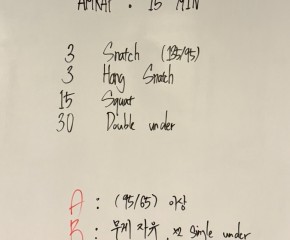 AMRAP . 15 MIN
3 Snatch (135/95)
3 Hang Snatch
15 Squat
30 Double under
A : (95/65) 이상
B : 무게 자유, x2 single under